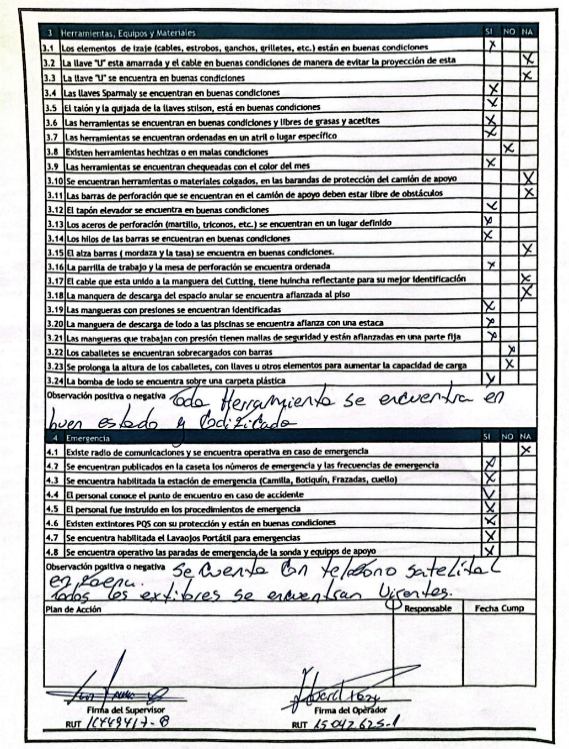 3 Herramientas, Equipos y Materiales SI NO NA
3.1 Los elementos de izaje (cables, estrobos, ganchos, grilletes, etc.) están en buenas condiciones X
3.2 La llave "U" esta amarrada y el cable en buenas condiciones de manera de evitar la proyección de esta X
3.3 La llave "U" se encuentra en buenas condiciones X
3.4 Las llaves Sparmaly se encuentran en buenas condiciones X
3.5 El talón y la quijada de la llaves stilson, está en buenas condiciones X
3.6 Las herramientas se encuentran en buenas condiciones y libres de grasas y acetites X
3.7 Las herramientas se encuentran ordenadas en un atril o lugar específico X
3.8 Existen herramientas hechizas o en malas condiciones X
3.9 Las herramientas se encuentran chequeadas con el color del mes X
3.10 Se encuentran herramientas o materiales colgados, en las barandas de protección del camión de apoyo X
3.11 Las barras de perforación que se encuentran en el camión de apoyo deben estar libre de obstáculos X
3.12 El tapón elevador se encuentra en buenas condiciones X
3.13 Los aceros de perforación (martillo, triconos, etc.) se encuentran en un lugar definido X
3.14 Los hilos de las barras se encuentran en buenas condiciones X
3.15 El alza barras ( mordaza y la tasa) se encuentra en buenas condiciones. X
3.16 La parrilla de trabajo y la mesa de perforación se encuentra ordenada X
3.17 El cable que esta unido a la manguera del Cutting, tiene huincha reflectante para su mejor identificación X
3.18 La manguera de descarga del espacio anular se encuentra afianzada al piso X
3.19 Las mangueras con presiones se encuentran identificadas X
3.20 La manguera de descarga de lodo a las piscinas se encuentra afianza con una estaca X
3.21 Las mangueras que trabajan con presión tienen mallas de seguridad y están afianzadas en una parte fija X
3.22 Los caballetes se encuentran sobrecargados con barras X
3.23 Se prolonga la altura de los caballetes, con llaves u otros elementos para aumentar la capacidad de carga X
3.24 La bomba de lodo se encuentra sobre una carpeta plástica X
Observación positiva o negativa Toda Herramienta se encuentra en
buen estado y Codificada
4 Emergencia SI NO NA
4.1 Existe radio de comunicaciones y se encuentra operativa en caso de emergencia X
4.2 Se encuentran publicados en la caseta los números de emergencia y las frecuencias de emergencia X
4.3 Se encuentra habilitada la estación de emergencia (Camilla, Botiquín, Frazadas, cuello) X
4.4 El personal conoce el punto de encuentro en caso de accidente X
4.5 El personal fue instruido en los procedimientos de emergencia X
4.6 Existen extintores PQS con su protección y están en buenas condiciones X
4.7 Se encuentra habilitada el Lavaojos Portátil para emergencias X
4.8 Se encuentra operativo las paradas de emergencia de la sonda y equipos de apoyo X
Observación positiva o negativa Se Cuenta Con teléfono Satelital
en
todos los extitores se encuentran Vigentes.
Plan de Acción Responsable Fecha Cump
Firma del Supervisor Firma del Operador
RUT RUT 15.042.625-1